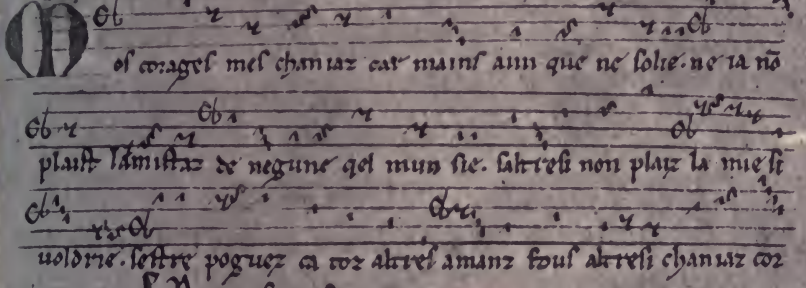 Mos corages mes chaniaz car mains aim que ne solie. ne ia nō
plaist lamistaz de negune qel mun sie. saltresi non plaiz la mie si
uoldrie. sestre poguez ca toz altres amanz fous altresi chaniaz cor